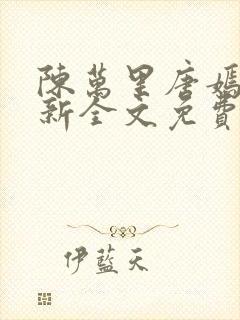 陳萬里唐嫣
新全文免費
伊藍天